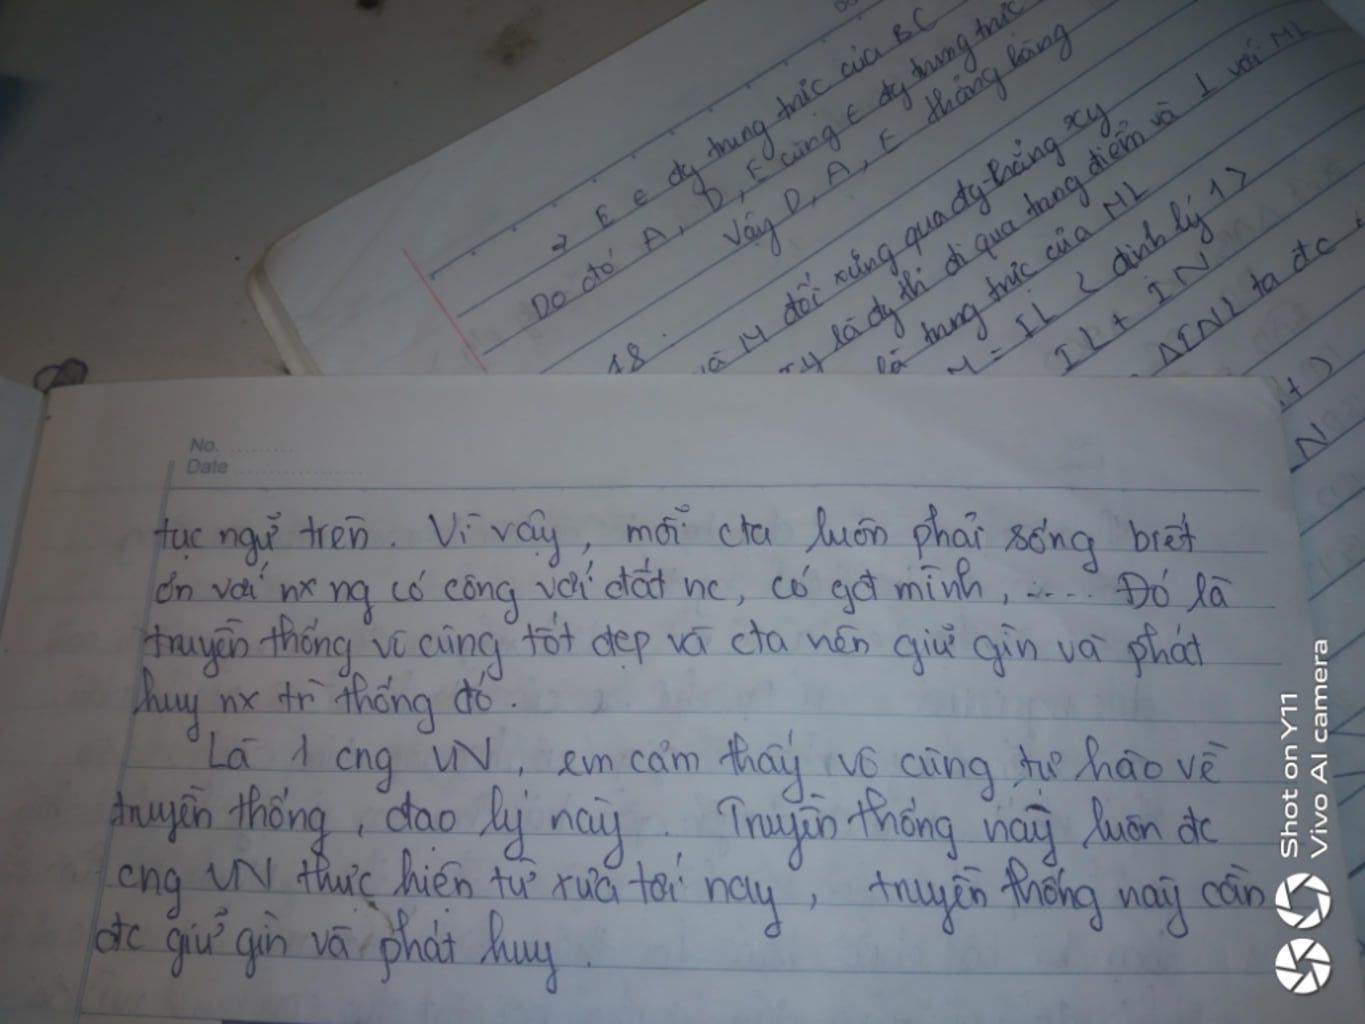 ⇒ E ∈ đg trung trực của BC
Do đó A, D, E cùng ∈ đg trung trực
Vậy D, A, E thẳng hàng
18.
M đối xứng qua đg thẳng xy
xy là đg thì đi qua trung điểm và ⊥ với ML
là trung trực của ML
= IL < định lý 1>
IL + IN
ΔINL ta đc
N
No.
Date
tục ngữ trên. Vì vậy, mỗi cta luôn phải sống biết
ơn với nx ng có công với đất nc, có gđ mình, .... Đó là
truyền thống vô cùng tốt đẹp và cta nên giữ gìn và phát
huy nx tr` thống đó.
Là 1 cng VN, em cảm thấy vô cùng tự hào về
truyền thống, đạo lý này. Truyền thống này luôn đc
cng VN thực hiện từ xưa tới nay, truyền thống này cần
đc giữ gìn và phát huy.
Shot on Y11
Vivo AI camera